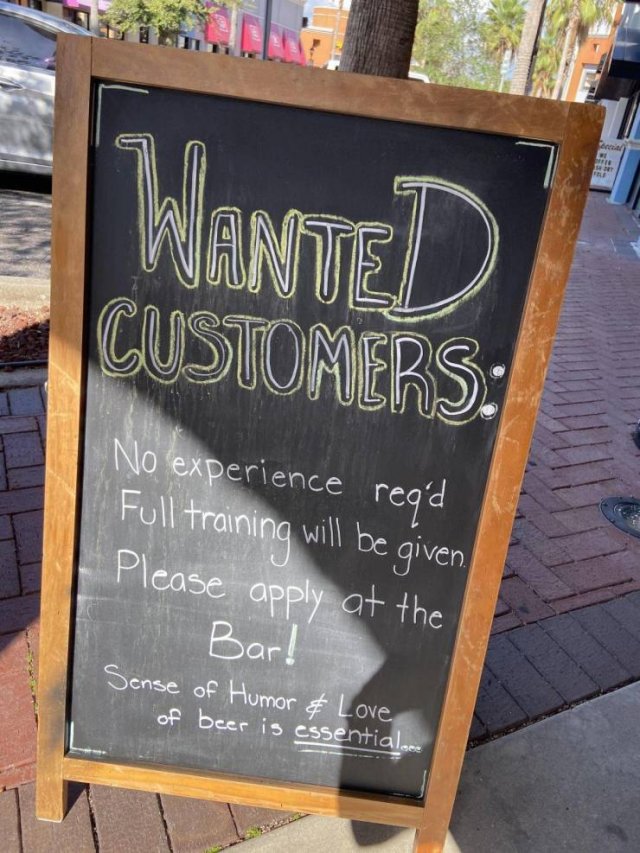 WANTED
CUSTOMERS:
No experience req'd
Full training will be given.
Please apply at the
Bar!
Sense of Humor & Love
of beer is essential...